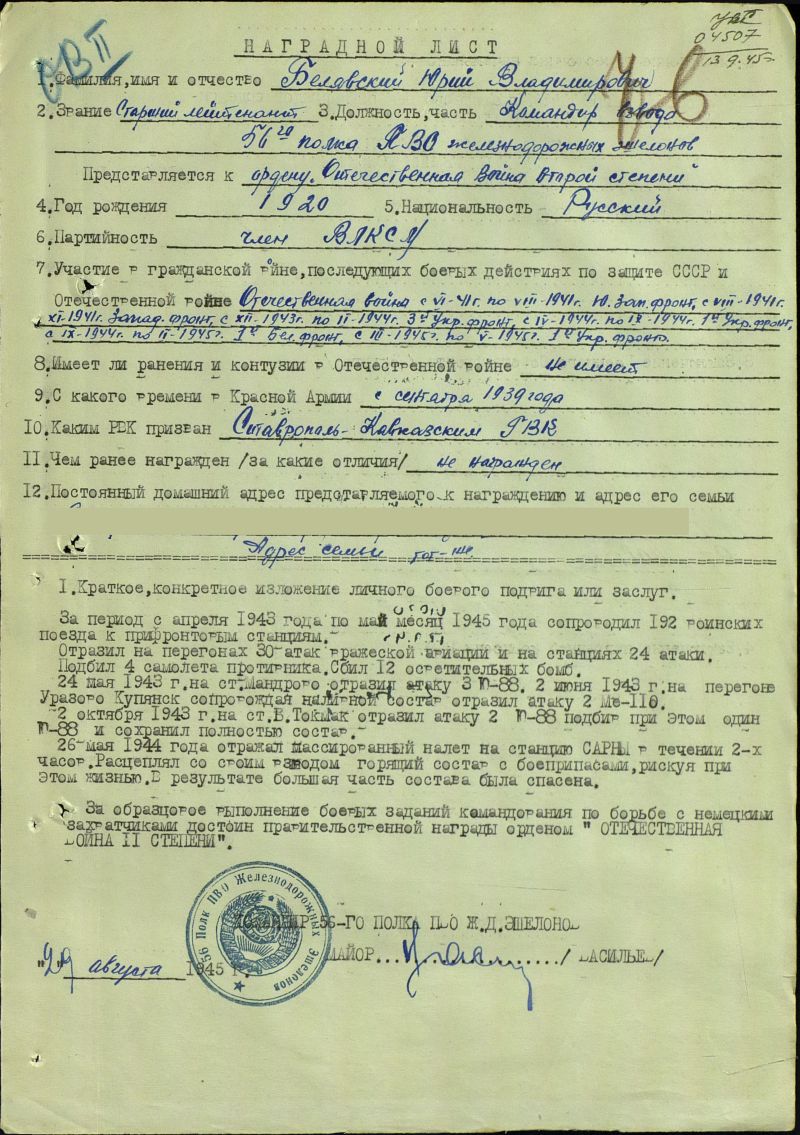 ОВ II
УВГ
04507
13.9.45г
НАГРАДНОЙ ЛИСТ
1.Фамилия,имя и отчество Белявский Юрий Владимирович
2.Звание Старший лейтенант 3.Должность,часть Командир взвода
56го полка ПВО железнодорожных эшелонов
Представляется к ордену „Отечественная война второй степени"
4.Год рождения 1920 5.Национальность Русский
6.Партийность член ВЛКСМ
7.Участие в гражданской войне,последующих боевых действиях по защите СССР и
Отечественной войне Отечественная война с VI-41г. по VIII-1941г. Ю.Зап.фронт, с VIII-1941г.
XI-1941г. Запад.фронт, с XII-1943г. по II-1944г. 3й Укр.фронт, с IV-1944г. по IX-1944г. 1й Укр.фронт,
с IX-1944г. по II-1945г. 1й Бел.фронт, с III-1945г. по V-1945г. 1й Укр.фронт.
8.Имеет ли ранения и контузии в Отечественной войне не имеет
9.С какого времени в Красной Армии с сентября 1939 года
10.Каким РВК призван Ставрополь-Кавказским ГВК
11.Чем ранее награжден /за какие отличия/ не награжден
12.Постоянный домашний адрес предотавляемого к награждению и адрес его семьи
Адрес семьи тот-же
I.Краткое,конкретное изложение личного боевого подвига или заслуг.
За период с апреля 1943 года по май месяц 1945 года сопроводил 192 воинских
поезда к прифронтовым станциям.-
Отразил на перегонах 30-атак вражеской авиации и на станциях 24 атаки.
Подбил 4 самолета противника.Сбил 12 осветительных бомб.
24 мая 1943 г.на ст.Мандрово отразил атаку 3 Ю-88. 2 июня 1943 г.на перегоне
Уразово Купянск сопровождая наливной состав отразил атаку 2 Ме-110.
2 октября 1943 г.на ст.Б.Токмак отразил атаку 2 Ю-88 подбив при этом один
Ю-88 и сохранил полностью состав.-
26-мая 1944 года отражал массированный налет на станцию САРНЫ в течении 2-х
часов.Расцеплял со своим взводом горящий состав с боеприпасами,рискуя при
этом жизнью.В результате большая часть состава была спасена.
За образцовое выполнение боевых заданий командования по борьбе с немецкими
захватчиками достоин правительственной награды орденом " ОТЕЧЕСТВЕННАЯ
ВОЙНА II СТЕПЕНИ".
КОМАНДИР 56-ГО ПОЛКА ПВО Ж.Д.ЭШЕЛОНОВ
МАЙОР............../ ВАСИЛЬЕВ/
"29" августа 1945 г.
56 Полк ПВО Железнодорожных Эшелонов